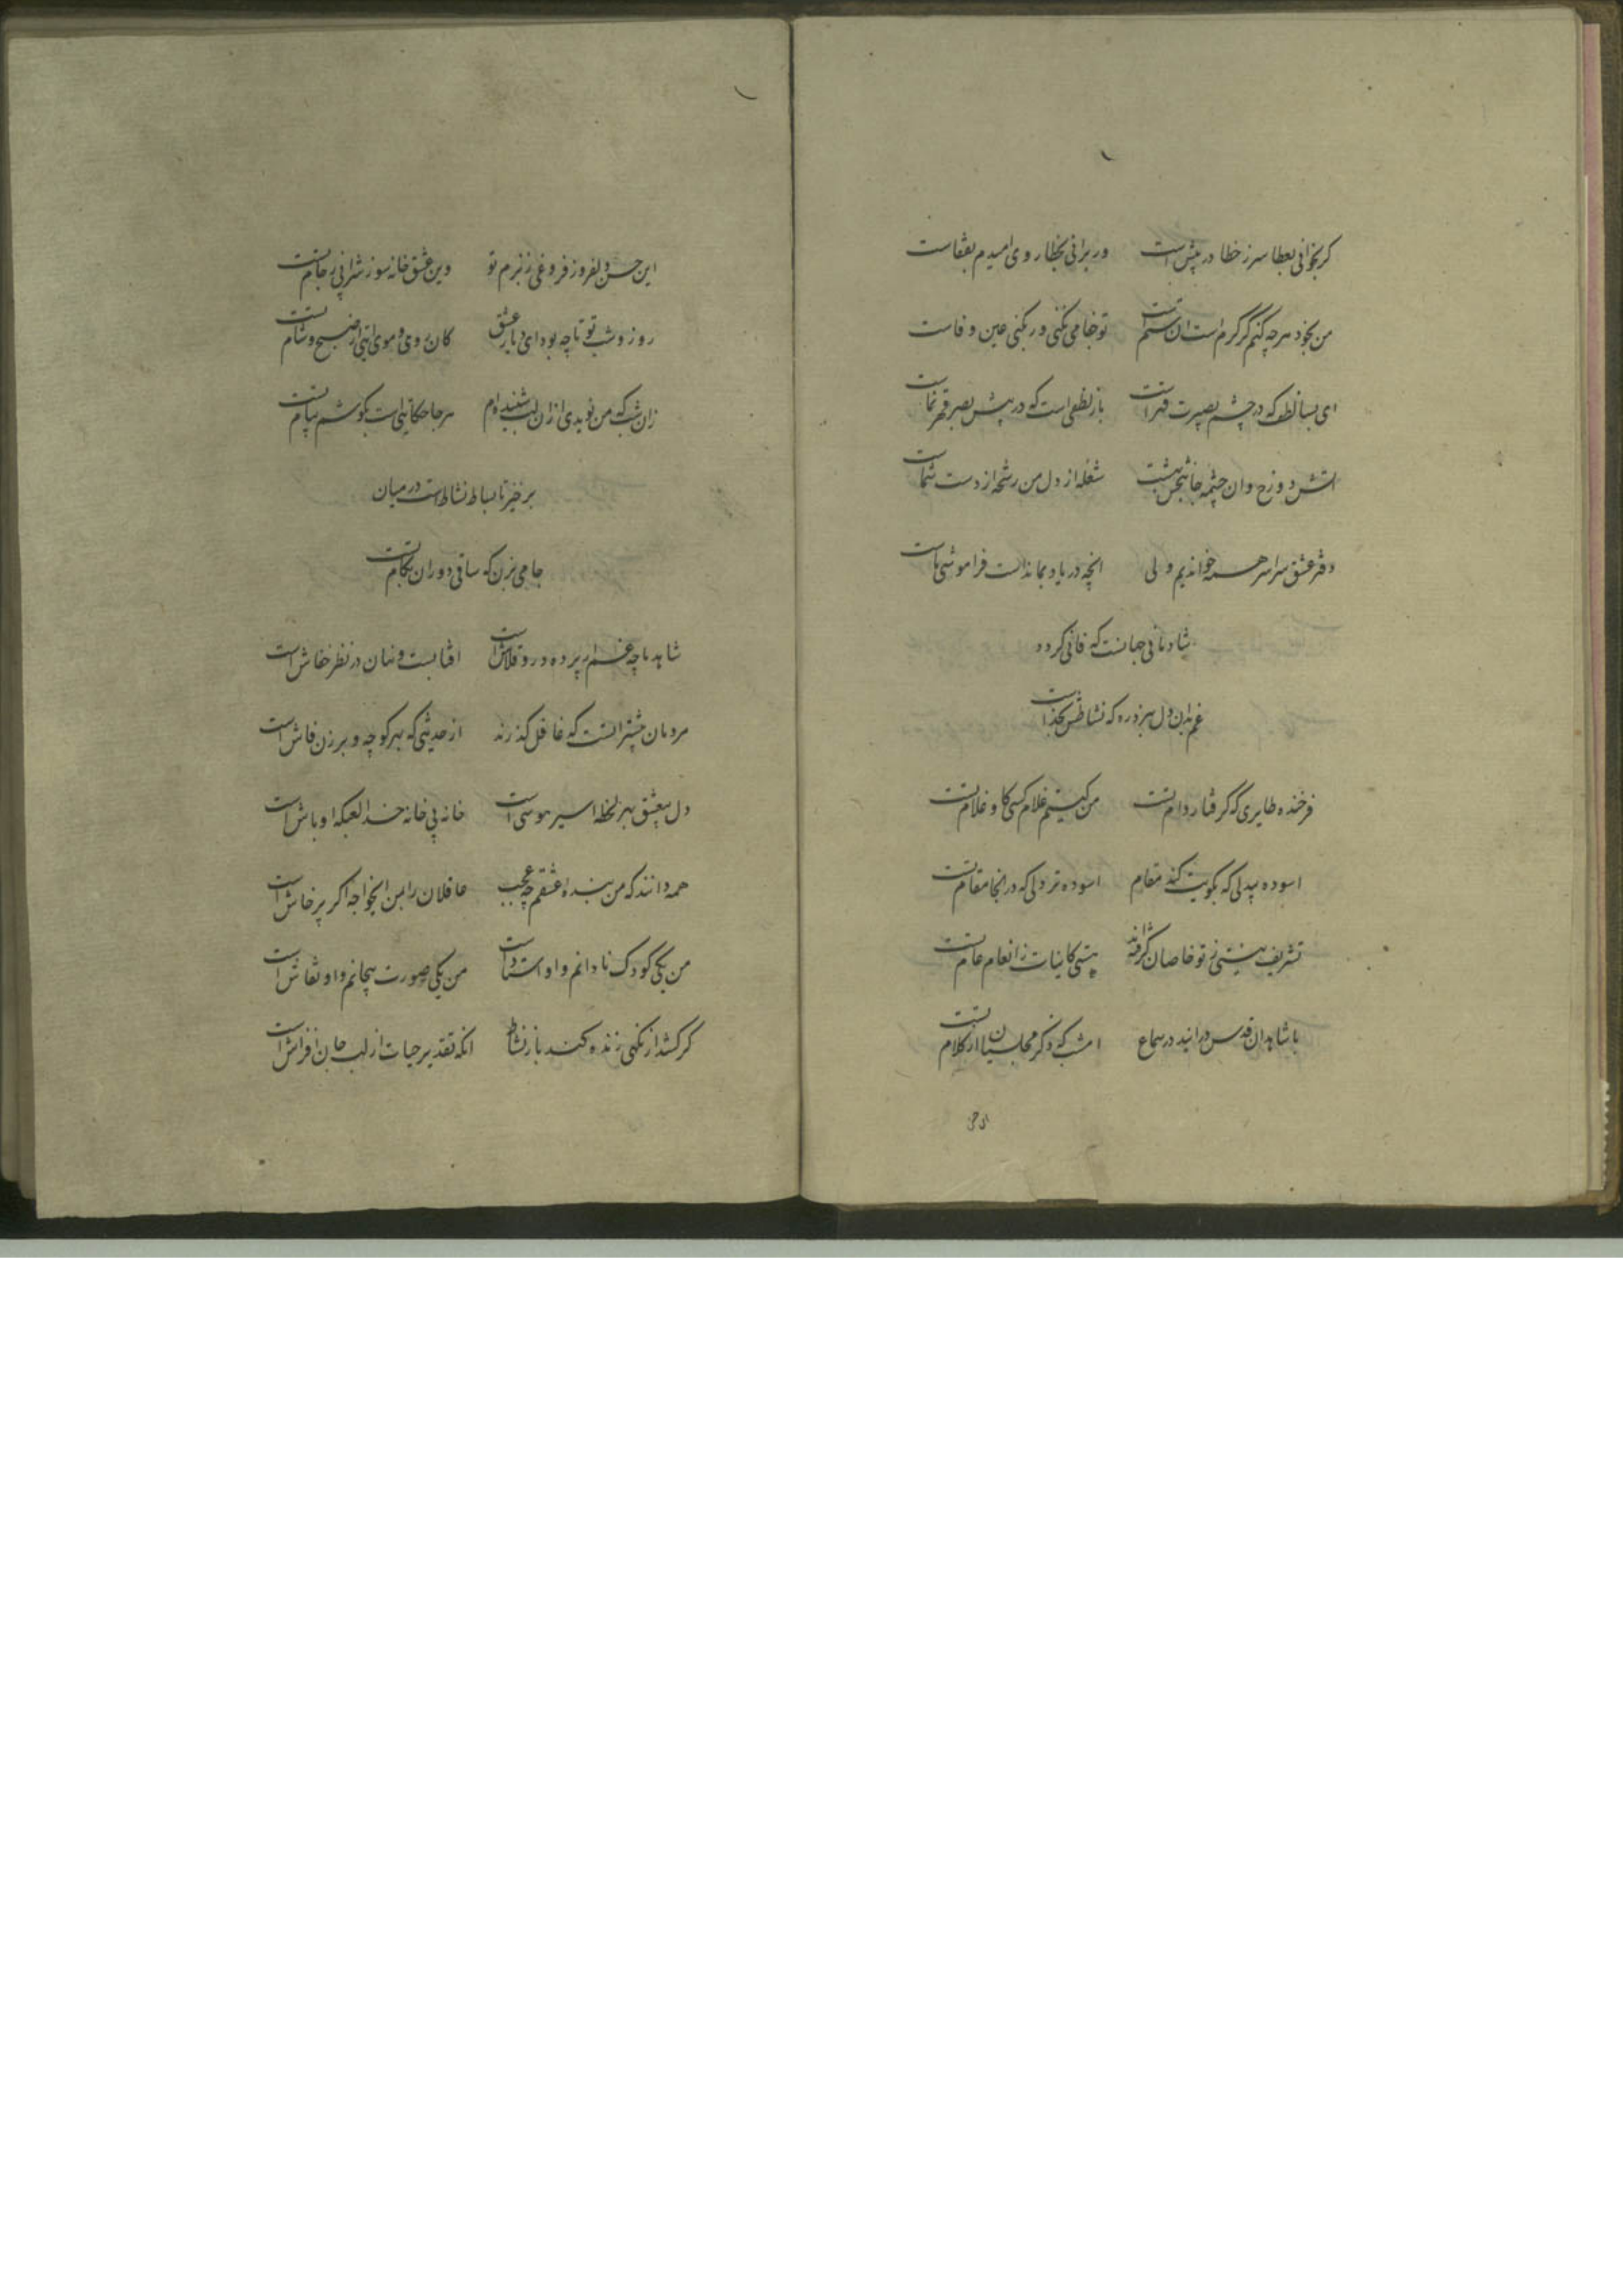 کر بخوانی بعطا سر ز خطا در پیش است ور برانی بخطا روی امیدم بقفاست
من بخود هرچه کنم گر کرم است ان ستم است تو جفا می نکنی ور بکنی عین وفاست
ای بسا لطف که در چشم بصیرت قهر است باز لطفی است که در پیش بصر قهرنماست
اتش دوزخ وان چشمه جانبخش بهشت شعله از دل من رشحه از دست شماست
دفتر عشق سراسر همه خواندیم ولی انچه در یاد بماند است فراموشی ماست
شادمانی جهانست که فانی کردد
غم بدان دل نبرد ره که نشاطش بخداست
فرخنده طایری که گرفتار دام تست من کیستم غلام کسی کاو غلام تست
اسوده بیدلی که بکویت کند مقام اسوده تر دلی که در انجا مقام تست
تشریف نیستی ز تو خاصان گرفته اند هستی کاینات ز انعام عام تست
با شاهدان قدس درایند در سماع امشب که ذکر مجلسیان از کلام تست
این حسن
این حسن دلفروز فروغی ز بزم تو وین عشق خانه سوز شرابی ز جام تست
روز و شب تو تا چه بود ای دیار عشق کان روی و موی ایتی از صبح و شام تست
زان شب که من نویدی ازان لب شنیده ام هرجا حکایتی است بکوشم پیام تست
برخیز تا بساط نشاط است در میان
جامی بزن که ساقی دوران بکام تست
شاهد ما چه غم ار پرده در و قلاش است افتابست و نهان در نظر خفاش است
مردمان خیره‌ ازانست که غافل گذرند از حدیثی که بهر کوچه و برزن فاش است
دل بیعشق بهر لحظه اسیر هوسی است خانه بی خانه خدا لعبکه اوباش است
همه دانند که من بنده عشقم چه عجب عاقلان را بمن ایخواجه اکر پرخاش است
من یکی کودک نادانم و او استاد است من یکی صورت بیجانم و او نقاش است
کر کشد از نکهی زنده کند باز نشاط انکه تقدیر حیات از لب جان افزاش است